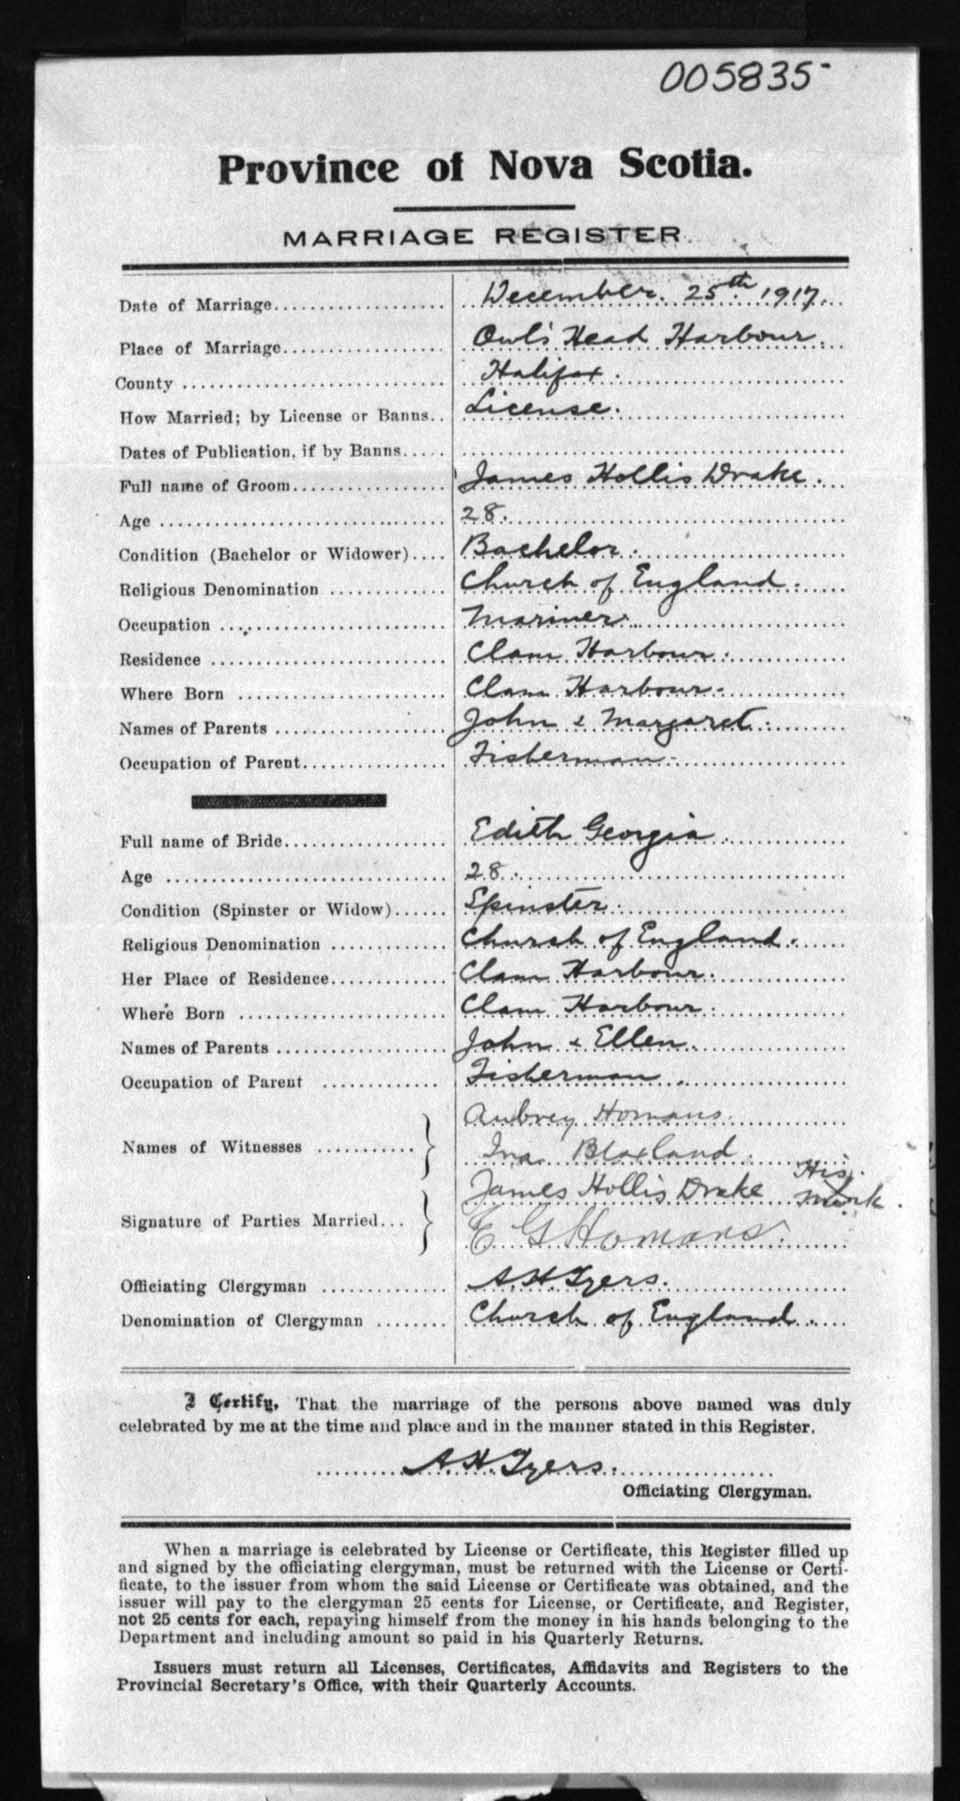 005835
Province of Nova Scotia.
MARRIAGE REGISTER
Date of Marriage.................... December 25th 1917.
Place of Marriage................... Owl's Head Harbour.
County ........................... Halifax.
How Married; by License or Banns.. License.
Dates of Publication, if by Banns.....
Full name of Groom................ James Hollis Drake.
Age ............................. 28.
Condition (Bachelor or Widower).... Bachelor.
Religious Denomination ............. Church of England.
Occupation ........................ Mariner.
Residence ......................... Clam Harbour.
Where Born ...................... Clam Harbour.
Names of Parents .................. John & Margaret.
Occupation of Parent................ Fisherman.
Full name of Bride.................. Edith Georgia
Age ............................. 28.
Condition (Spinster or Widow)...... Spinster.
Religious Denomination ............. Church of England.
Her Place of Residence............. Clam Harbour.
Where Born ...................... Clam Harbour.
Names of Parents .................. John & Ellen.
Occupation of Parent ............. Fisherman.
Aubrey Homans.
Names of Witnesses ........... Ina Blaxland.
James Hollis Drake His Mark.
Signature of Parties Married... E G Homans.
Officiating Clergyman .............. A.H. Tyers.
Denomination of Clergyman ........ Church of England.
I Certify, That the marriage of the persons above named was duly
celebrated by me at the time and place and in the manner stated in this Register.
A.H. Tyers.
Officiating Clergyman.
When a marriage is celebrated by License or Certificate, this Register filled up
and signed by the officiating clergyman, must be returned with the License or Certi-
ficate, to the issuer from whom the said License or Certificate was obtained, and the
issuer will pay to the clergyman 25 cents for License, or Certificate, and Register,
not 25 cents for each, repaying himself from the money in his hands belonging to the
Department and including amount so paid in his Quarterly Returns.
Issuers must return all Licenses, Certificates, Affidavits and Registers to the
Provincial Secretary's Office, with their Quarterly Accounts.